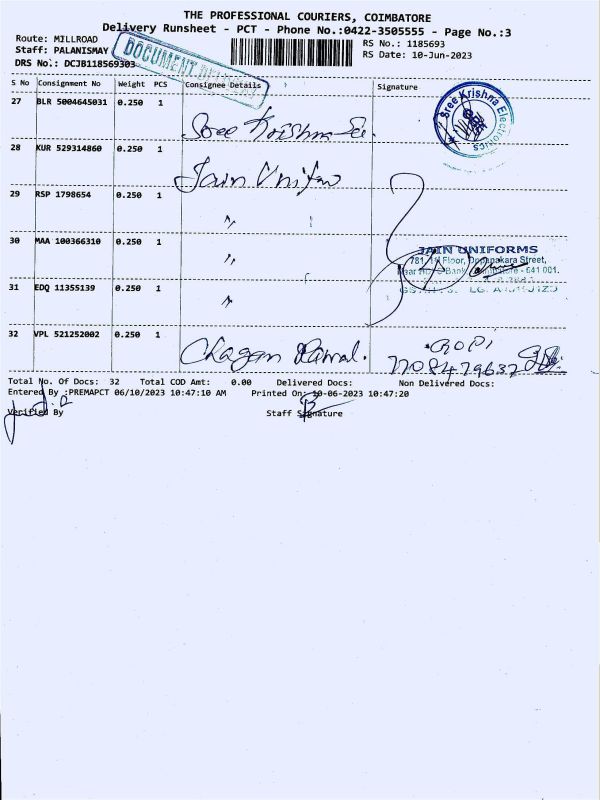 THE PROFESSIONAL COURIERS, COIMBATORE
Delivery Runsheet - PCT - Phone No.:0422-3505555 - Page No.:3
Route: MILLROAD
Staff: PALANISMAY
DRS No.: DCJB118569303
DOCUMENT
RS No.: 1185693
RS Date: 10-Jun-2023
S No Consignment No Weight PCS Consignee Details Signature
27 BLR 5004645031 0.250 1 Sree Krishna
Sree Krishna Electronics
28 KUR 529314860 0.250 1 Jain Unifo
29 RSP 1798654 0.250 1 "
30 MAA 100366310 0.250 1 "
JAIN UNIFORMS
781, Floor, Street,
Near Bank, - 641 001.
31 EDQ 11355139 0.250 1 "
32 VPL 521252002 0.250 1 Chagan
GOPI
Total No. Of Docs: 32 Total COD Amt: 0.00 Delivered Docs: Non Delivered Docs:
Entered By :PREMAPCT 06/10/2023 10:47:10 AM Printed On: 10-06-2023 10:47:20
Verified By Staff Signature